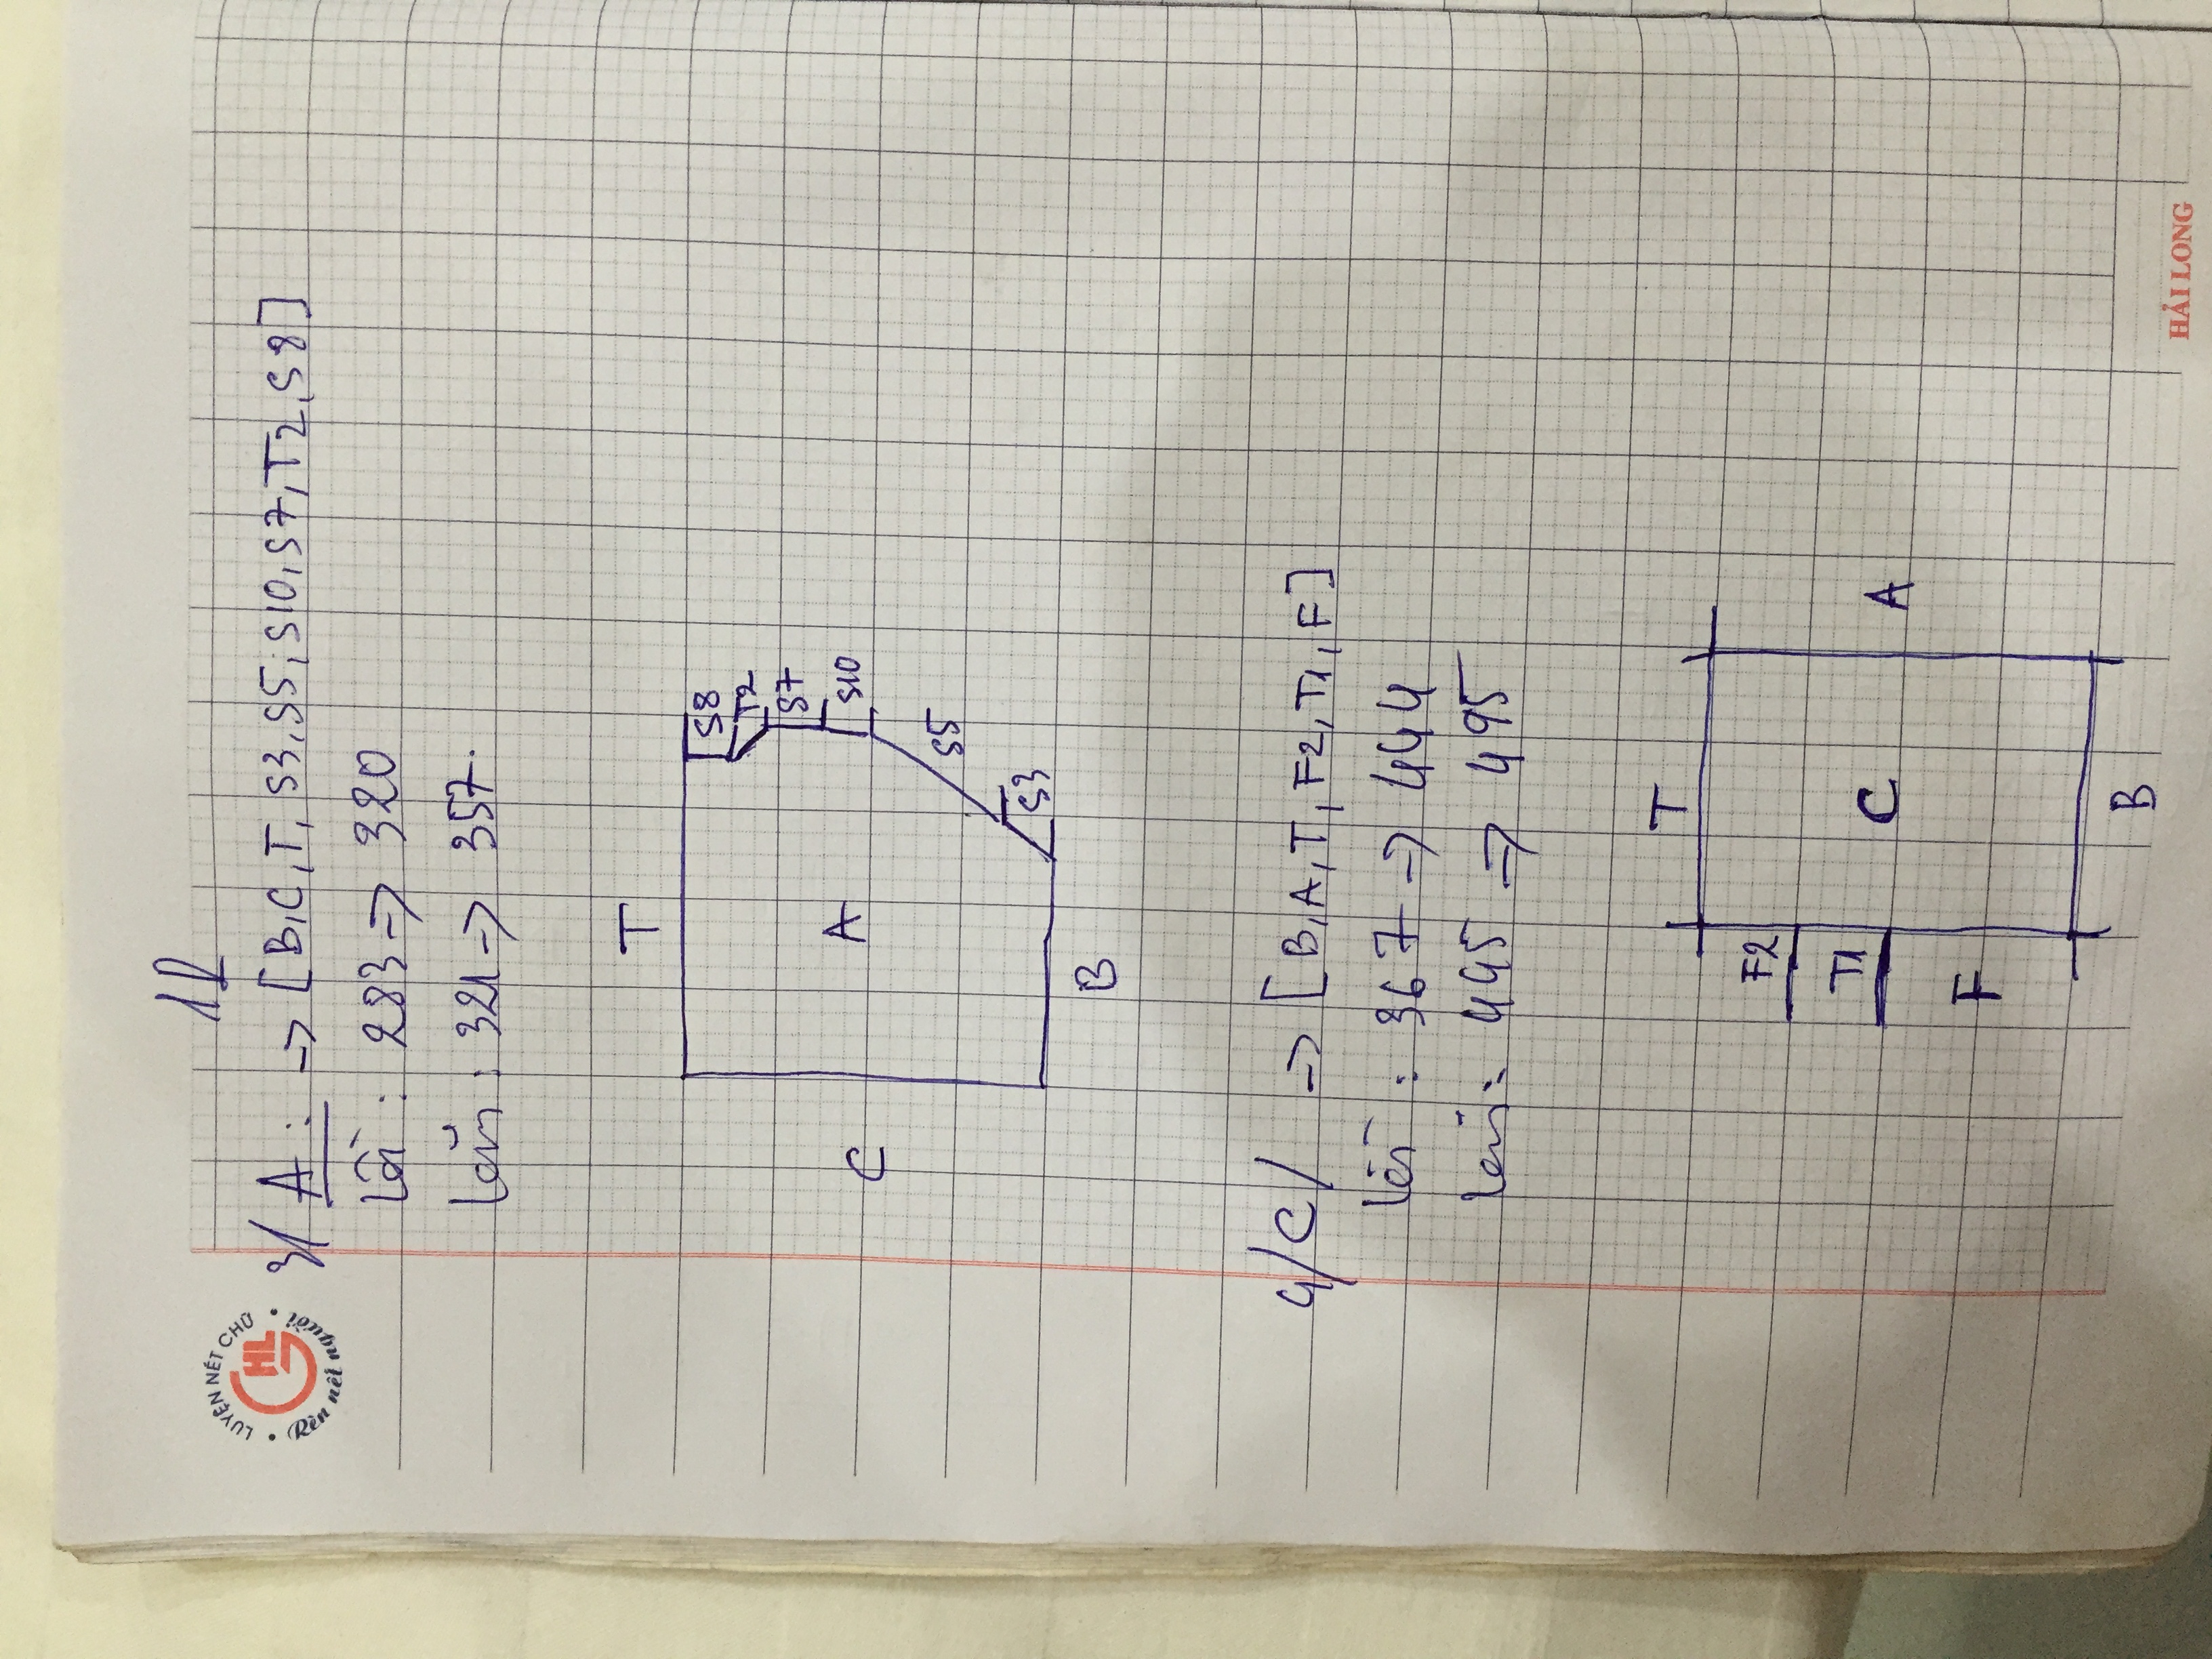 12
LUYỆN NẾT CHỮ
HL
(Rèn nết người)
3/ A: -> [B, C, T, S3, S5, S10, S7, T2, S8]
lồi : 283 -> 320
lõm : 321 -> 357.
T
S8
T2
S7
C A S10
S5
S3
B
4/ C/ -> [B, A, T, F2, T1, F]
lồi : 367 -> 444
lõm : 445 => 495
T
F2
T1
C A
F
B
HẢI LONG